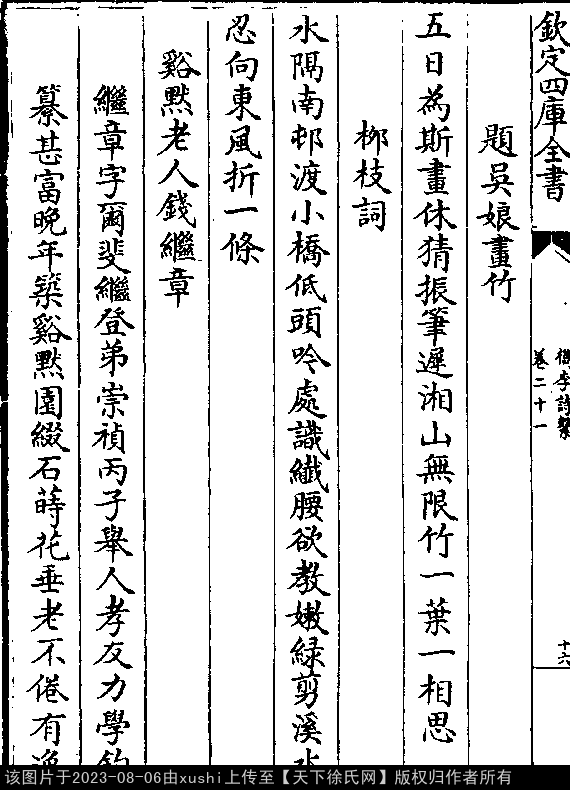 欽定四庫全書
檇李詩繫
卷二十一
十六
題吳娘畫竹
五日為斯畫休猜振筆遲湘山無限竹一葉一相思
栁枝詞
水隅南邨渡小橋低頭吟處識纖腰欲教嫩緑剪溪
忍向東風折一條
谿黙老人錢繼章
繼章字爾斐繼登弟崇禎丙子舉人孝友力學
纂甚富晚年築谿黙園綴石蒔花垂老不倦有
该图片于2023-08-06由xushi上传至【天下徐氏网】版权归作者所有